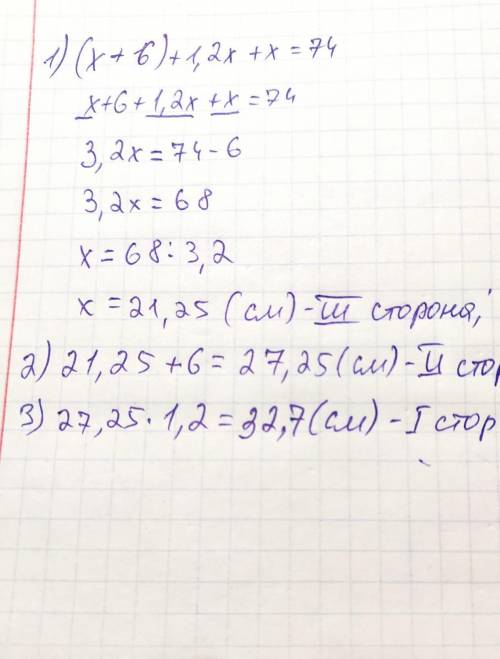 1) (x + 6) + 1,2x + x = 74
x+6+1,2x+x=74
3,2x = 74 - 6
3,2x = 68
x = 68 : 3,2
x = 21,25 (см) - III сторона,
2) 21,25 + 6 = 27,25 (см) - II стор
3) 27,25 · 1,2 = 32,7 (см) - I стор